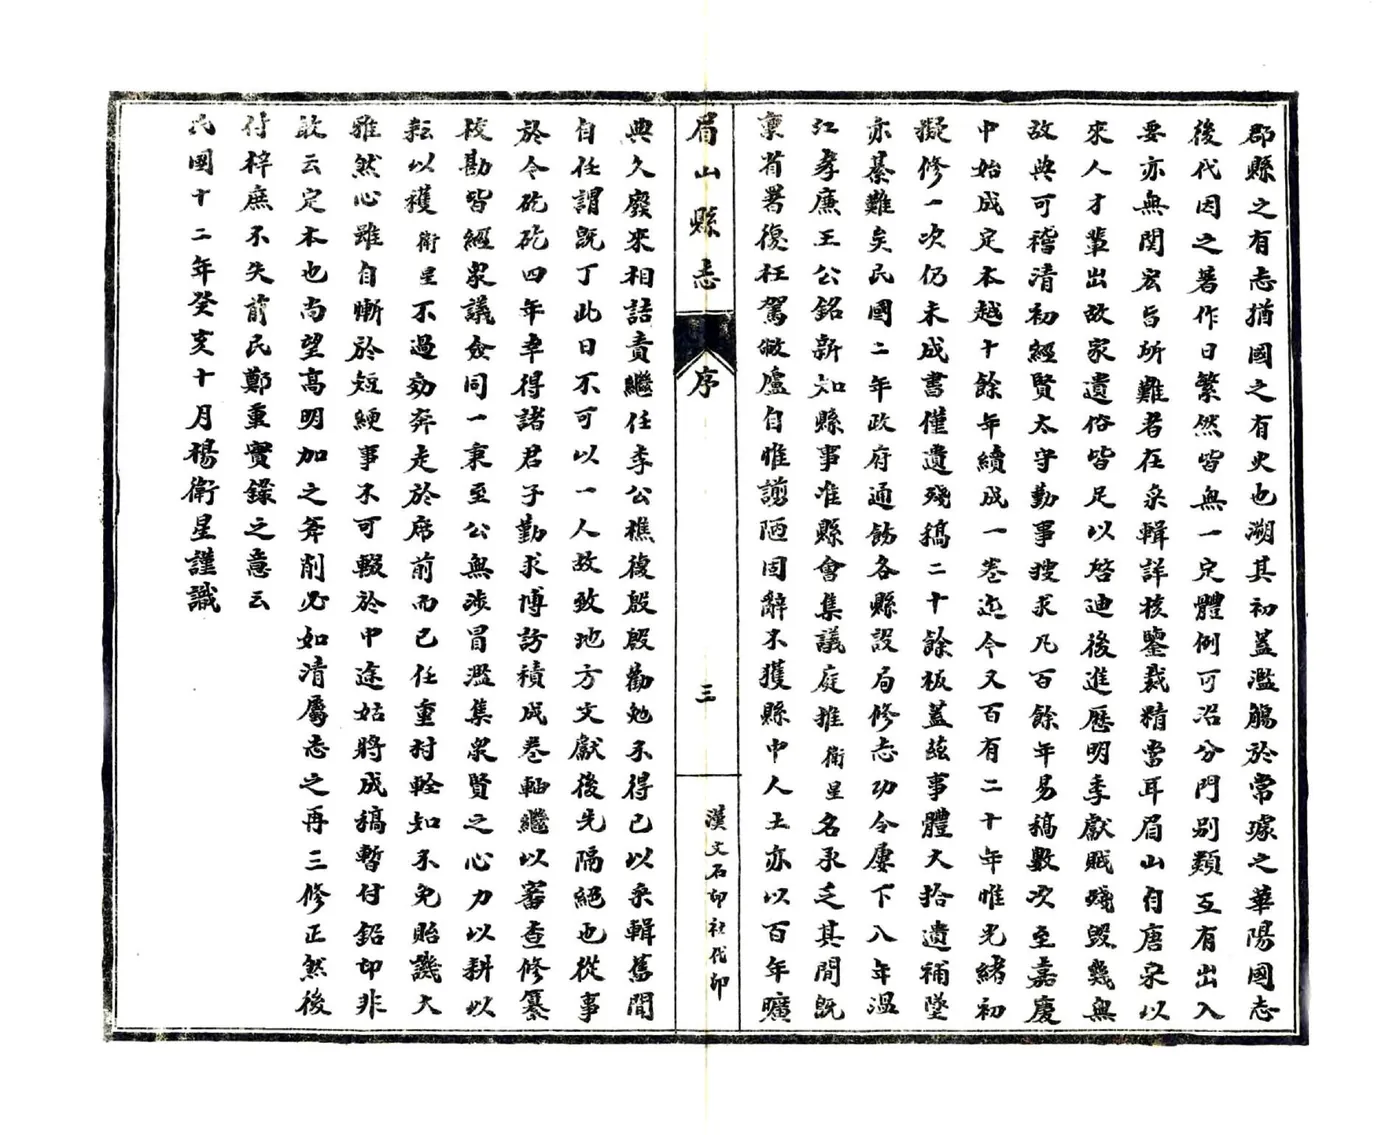 郡縣之有志猶國之有史也溯其初蓋濫觴於常璩之華陽國志
後代因之著作日繁然皆無一定體例可沿分門别類互有出入
要亦無関宏旨所難者在采輯詳核鑒裁精當耳眉山自唐宋以
來人才輩出故家遺俗皆足以啓迪後進歷明季獻賊殘毀幾無
故典可稽清初經賢太守勤事搜求凡百餘年易稿數次至嘉慶
中始成定本越十餘年續成一卷迄今又百有二十年惟光緒初
擬修一次仍未成書僅遺殘稿二十餘板蓋茲事體大拾遺補墜
亦綦難矣民國二年政府通飭各縣設局修志功令屢下八年溫
江孝廉王公銘新知縣事准縣會集議庭推衛星名承乏其間既
稟省署復枉駕敝廬自惟謭陋固辭不獲縣中人士亦以百年曠
眉山縣志
序
三
漢文石印社代印
典久廢來相詰責繼任李公樵復殷殷勸勉不得已以采輯舊聞
自任謂既丁此日不可以一人故致地方文獻後先隔絕也從事
於今矻矻四年幸得諸君子勤求博訪積成卷軸繼以審查修纂
校勘皆經眾議僉同一秉至公無涉冒濫集眾賢之心力以耕以
耘以穫衛星不過効奔走於席前而已任重材輇知不免貽譏大
雅然心雖自慚於短綆事不可輟於中途姑將成稿暫付鉛印非
敢云定本也尚望高明加之斧削必如清屬志之再三修正然後
付梓庶不失前民鄭重實錄之意云
民國十二年癸亥十月楊衛星謹識